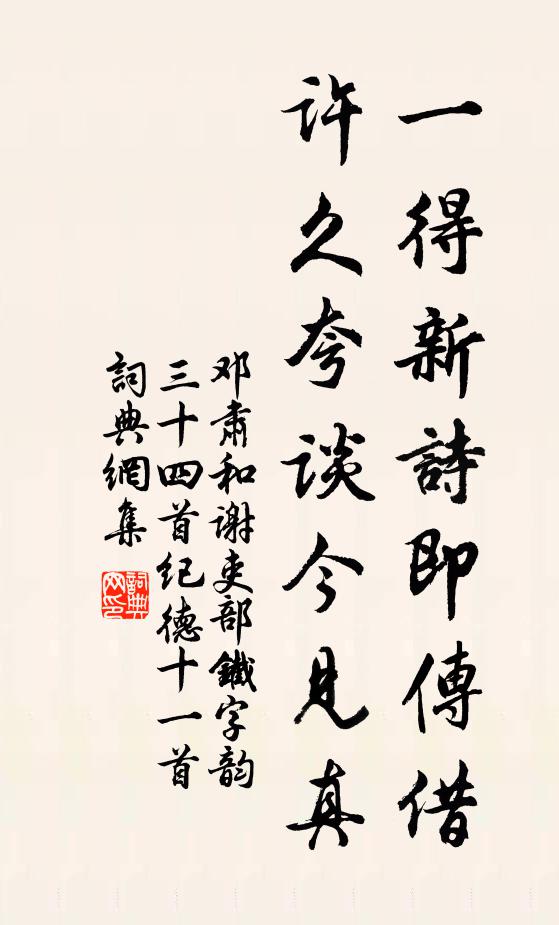 一得新詩即傳借
许久夸谈今见真
邓肅和谢吏部鐵字韵
三十四首纪德十一首
詞典網集
詞典網印